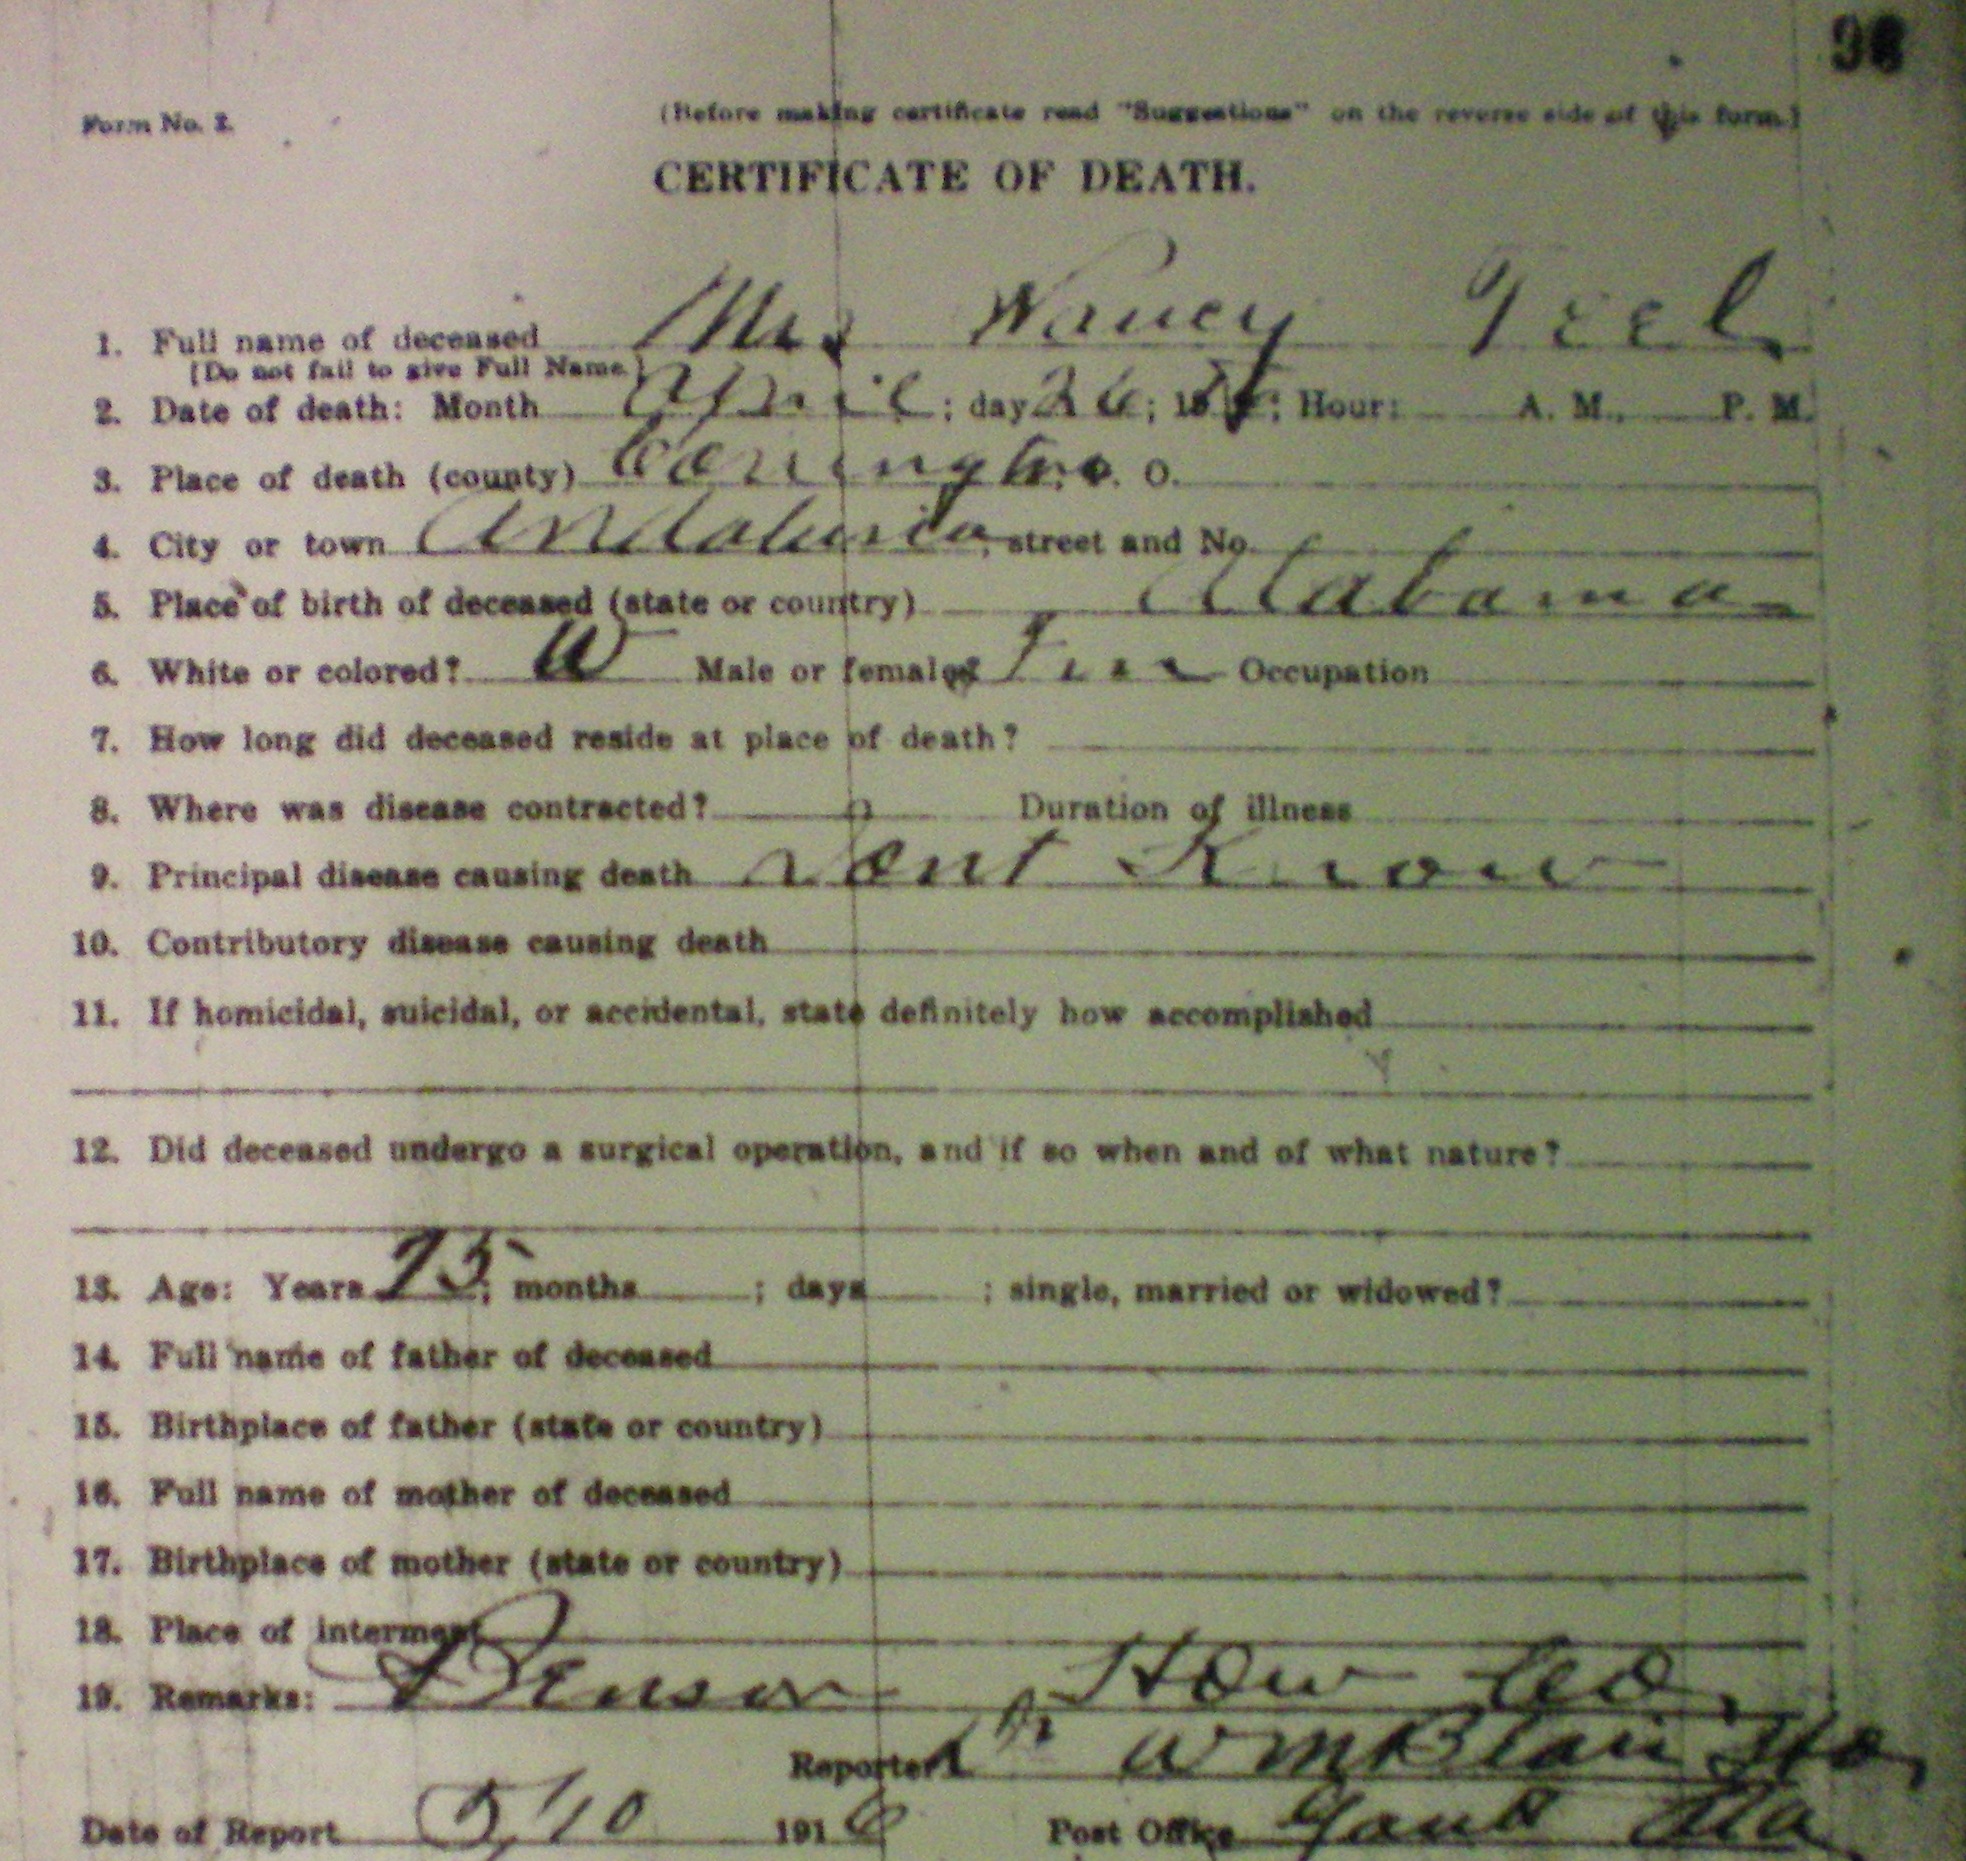 Form No. 2.
(Before making certificate read "Suggestions" on the reverse side of this form.)
CERTIFICATE OF DEATH.
1. Full name of deceased Mrs Nancy Teel
[Do not fail to give Full Name.]
2. Date of death: Month April ; day 26 ; 19 ; Hour: A. M., P. M.
3. Place of death (county) Covington P. O.
4. City or town Andalusia, street and No.
5. Place of birth of deceased (state or country) Alabama
6. White or colored? W Male or female? Fem Occupation
7. How long did deceased reside at place of death?
8. Where was disease contracted? Duration of illness
9. Principal disease causing death dont Know
10. Contributory disease causing death
11. If homicidal, suicidal, or accidental, state definitely how accomplished
12. Did deceased undergo a surgical operation, and if so when and of what nature?
13. Age: Years 75; months ; days ; single, married or widowed?
14. Full name of father of deceased
15. Birthplace of father (state or country)
16. Full name of mother of deceased
17. Birthplace of mother (state or country)
18. Place of interment
19. Remarks: Benson Co
Reporter Dr Wm Blair
Date of Report 5/10 1916 Post Office Gantt Ala